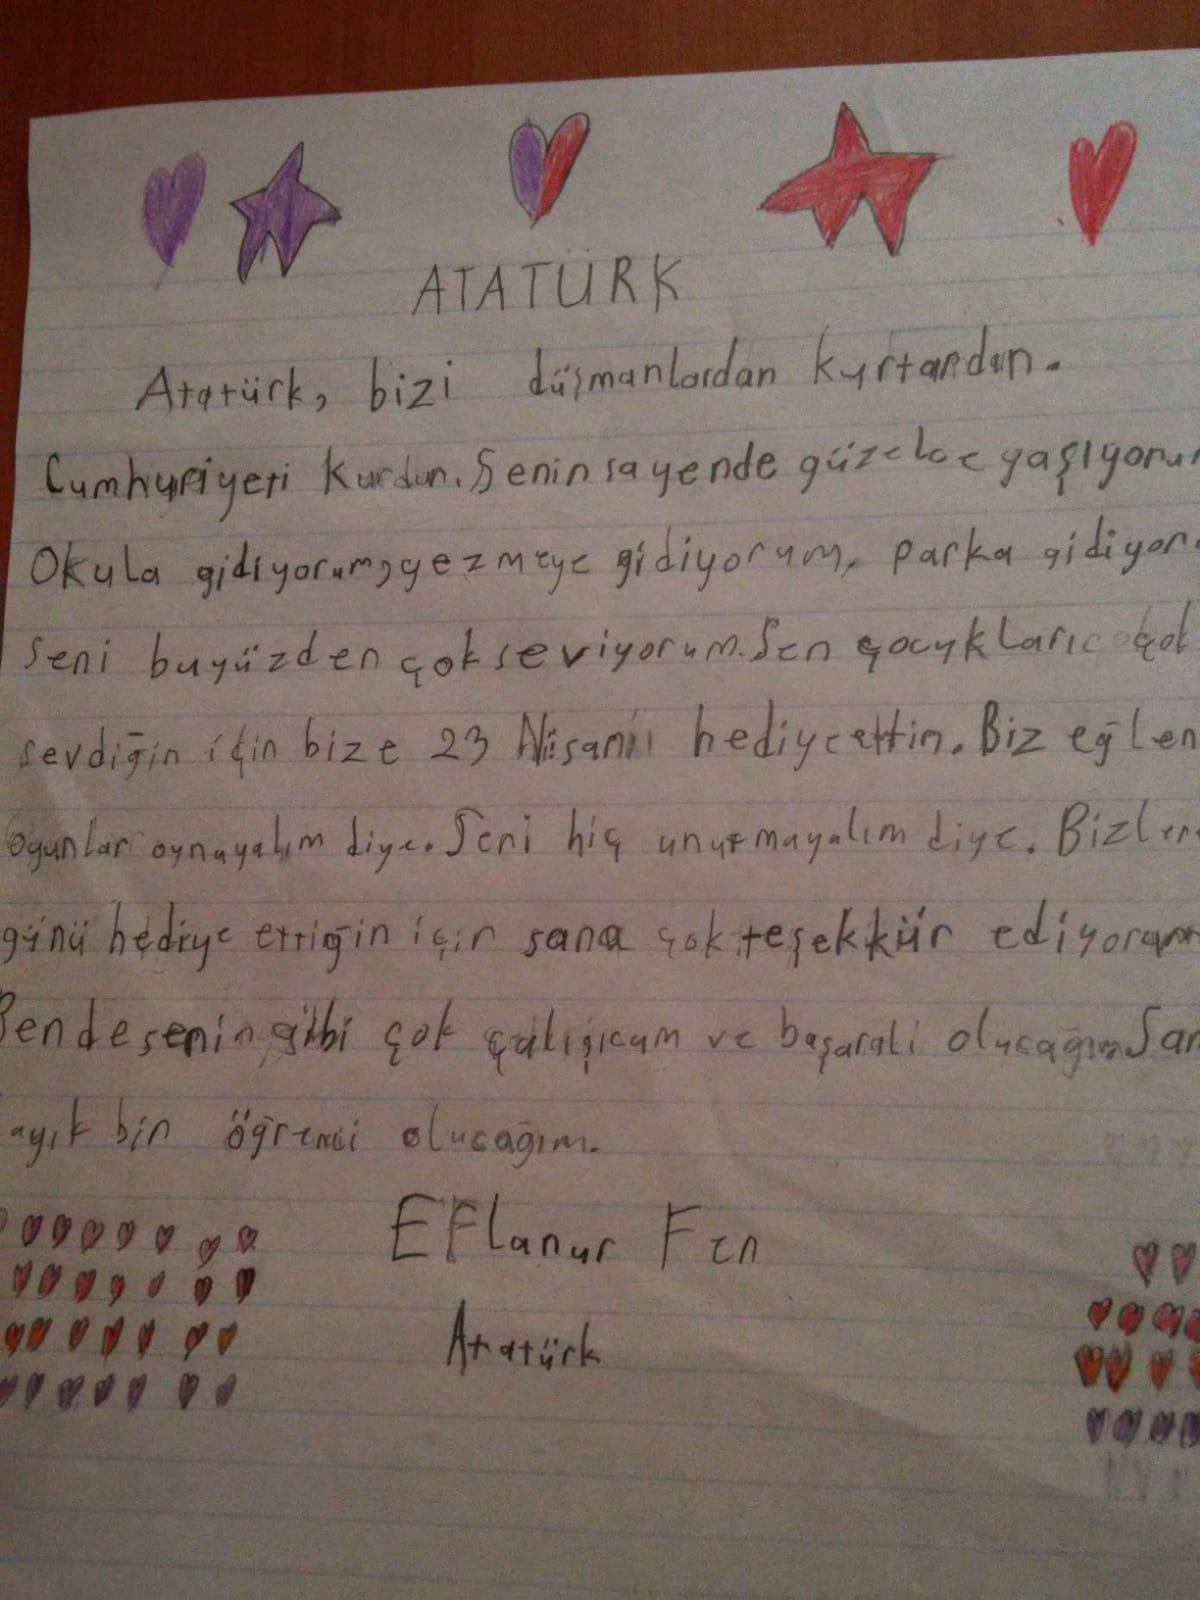 ATATÜRK
Atatürk, bizi düşmanlardan kurtardın.
Cumhuriyeti kurdun. Senin sayende güzelce yaşıyorum
Okula gidiyorum, gezmeye gidiyorum, parka gidiyor
Seni buyüzden çok seviyorum. Sen çocukları çok
sevdiğin için bize 23 Nisanı hediye ettin. Biz eğlen
oyunlar oynayalım diye. Seni hiç unutmayalım diye. Bizler
günü hediye ettiğin için sana çok teşekkür ediyorum
Bende senin gibi çok çalışıcam ve başarali olucağım San
ayık bir öğrenci olucağım.
Eflanur
Atatürk